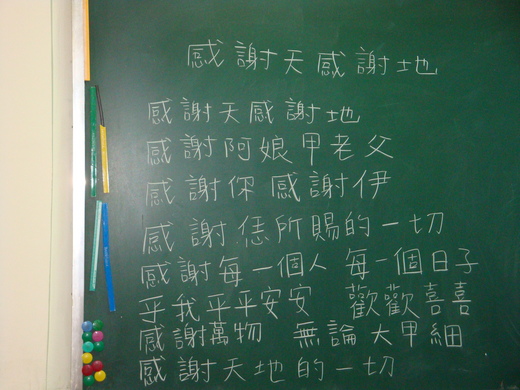 感謝天感謝地
感謝天感謝地
感謝阿娘甲老父
感謝你 感謝伊
感謝恁所賜的一切
感謝每一個人 每一個日子
乎我平平安安 歡歡喜喜
感謝萬物 無論大甲細
感謝天地的一切